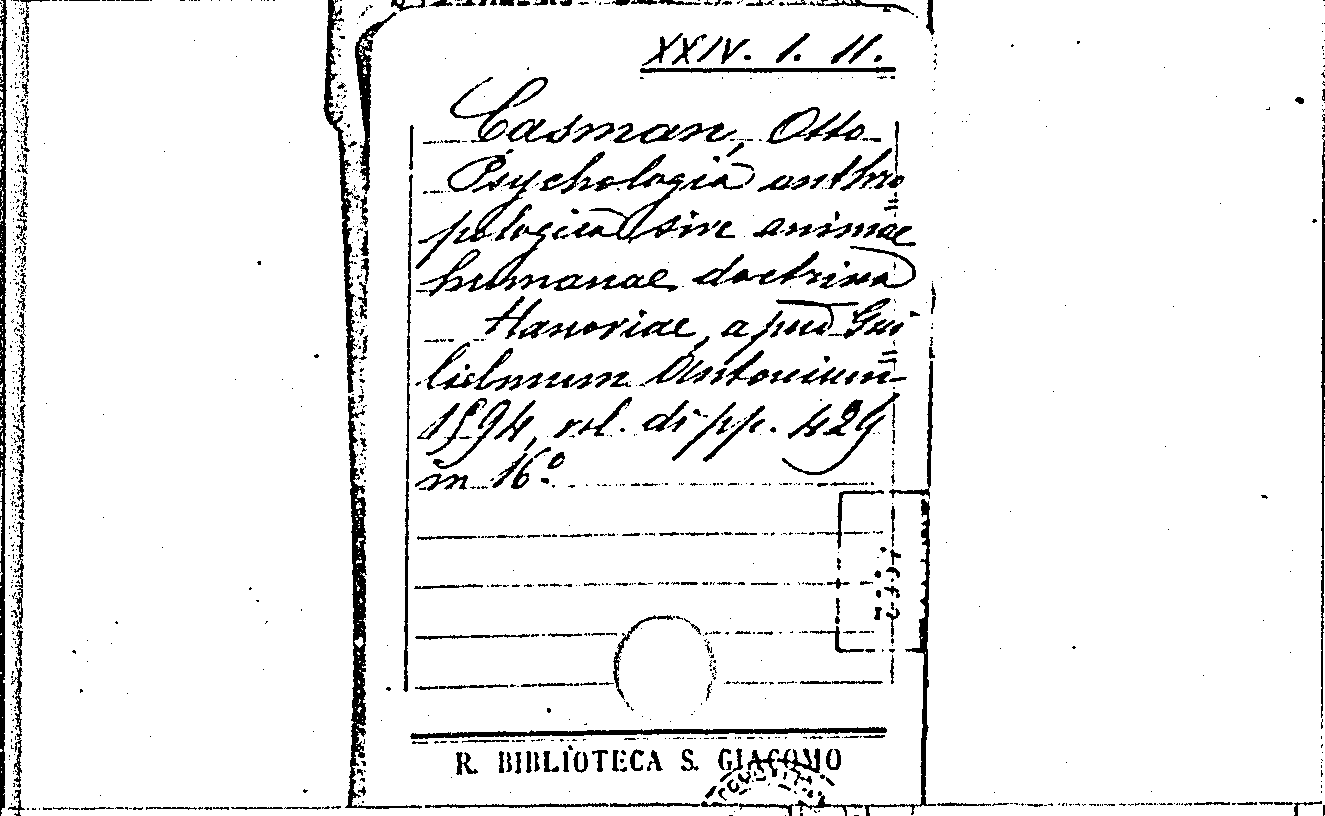 XXIV. 1. 11.
Casman, Otto
Psychologia anthro
pologica sive animae
humanae doctrina
Hanoviae, apud Gui
lielmum Antonium
1594, vol. di pp. 429
in 16.°
R. BIBLIOTECA S. GIACOMO